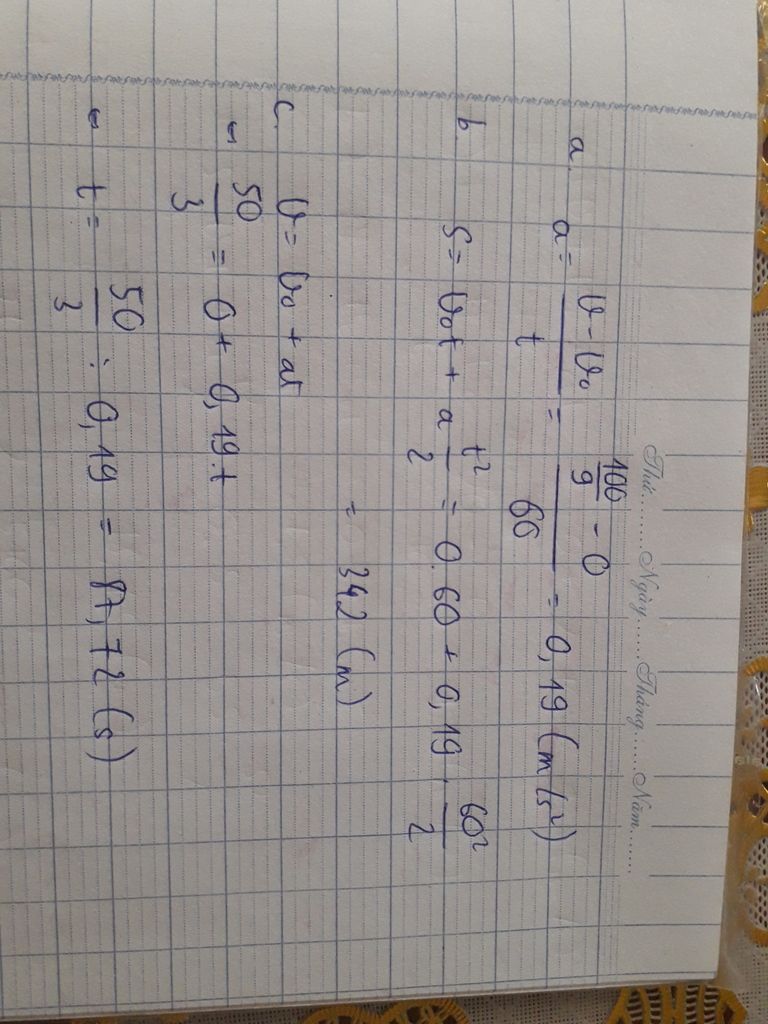 Thứ........Ngày......Tháng......Năm........
a. a = \frac{v - v₀}{t} = \frac{\frac{100}{9} - 0}{60} = 0,19 (m/s²)
b. S = v₀t + a \frac{t²}{2} = 0.60 + 0,19 . \frac{60²}{2}
= 342 (m)
c. v = v₀ + at
⇔ \frac{50}{3} = 0 + 0,19.t
⇔ t = \frac{50}{3} : 0,19 = 87,72 (s)